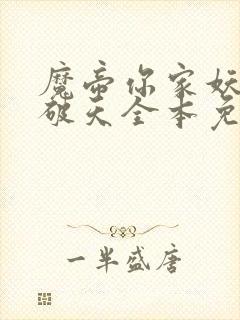 魔帝你家妖
破天全本免
一半盛唐